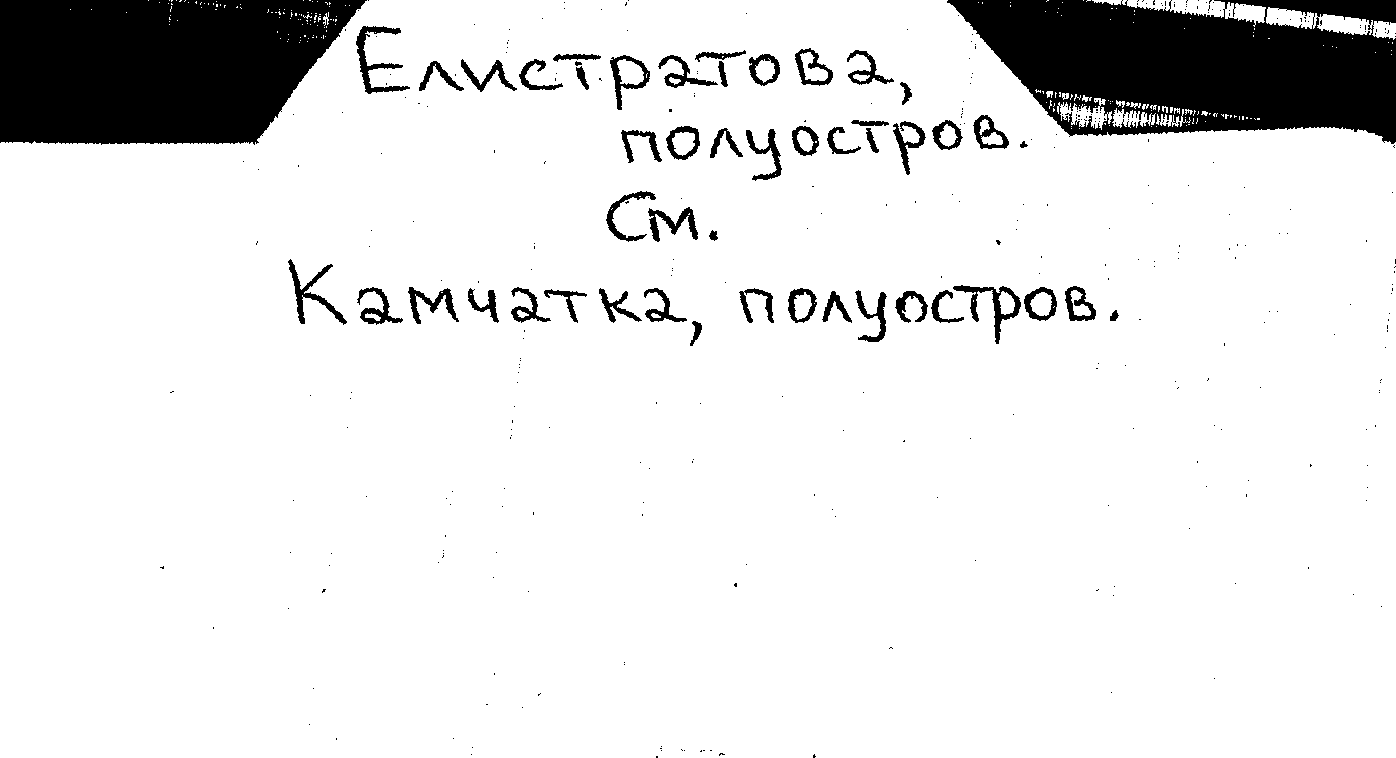 Елистратова,
полуостров.
См.
Камчатка, полуостров.